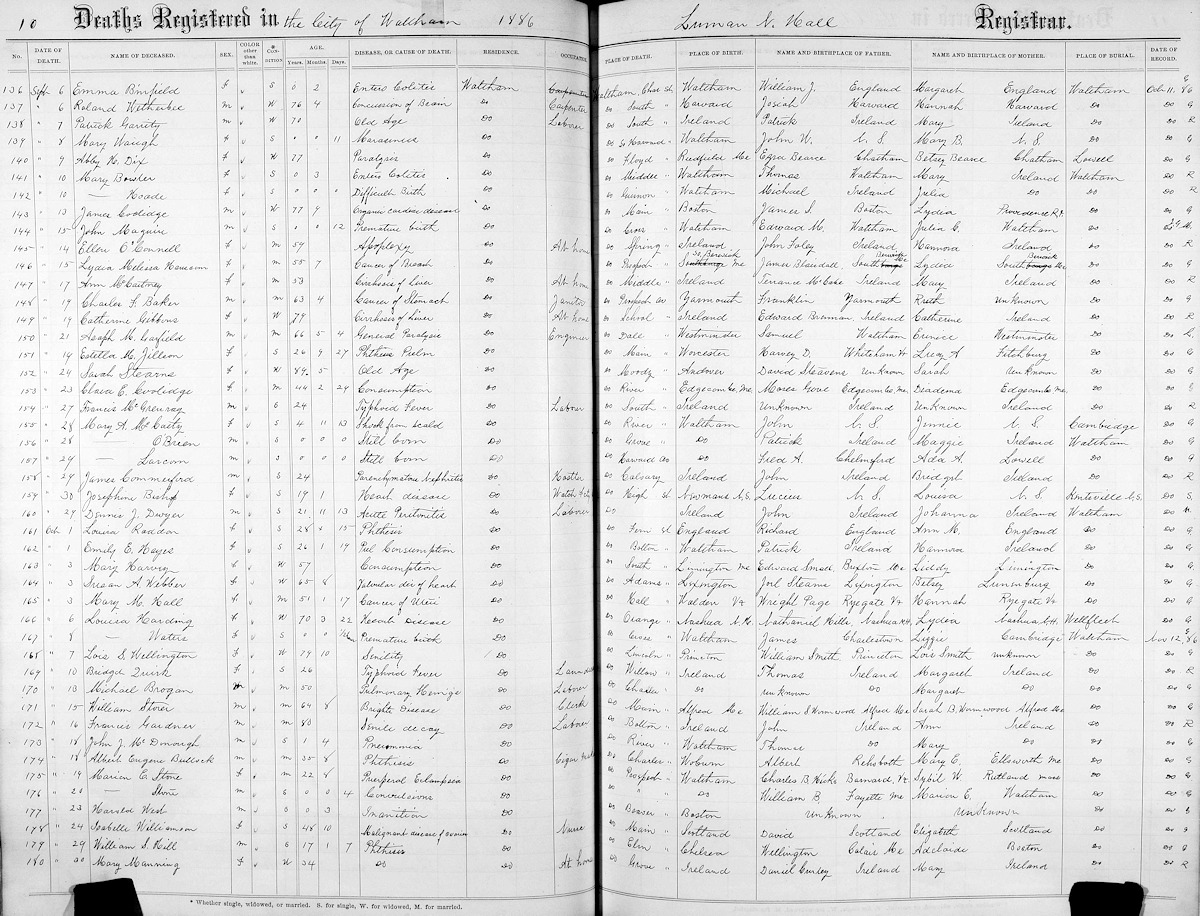 10 Deaths Registered in the City of Waltham 1886 Luman N. Hall Registrar.
No. DATE OF DEATH. NAME OF DECEASED. SEX. COLOR other than white. * CONDITION AGE. Years. Months. Days. DISEASE, OR CAUSE OF DEATH. RESIDENCE. OCCUPATION. PLACE OF DEATH. PLACE OF BIRTH. NAME AND BIRTHPLACE OF FATHER. NAME AND BIRTHPLACE OF MOTHER. PLACE OF BURIAL. DATE OF RECORD.
136 Sept 6 Emma Binfield f S 0 2 Entero Colitis Waltham Waltham, Char St Waltham William J. England Margaret England Waltham Oct 11. 86 G
137 " 6 Roland Wetherbee m W 76 4 Concussion of Brain Do Carpenter Do South " Harvard Josiah Harvard Hannah Harvard Do G
138 " 7 Patrick Garrity m W 70 Old Age Do Laborer Do South " Ireland Patrick Ireland Mary Ireland Do R
139 " 8 Mary Waugh f S 11 Marasmus Do Waltham John W. N. S. Mary B. N. S. Do G
140 " 9 Abby H. Dix f W 77 Paralysis Do Floyd " Readfield Me Ezra Bearce Chatham Betsey Bearce Chatham Lowell Do G
141 " 10 Mary Bowker f S 0 3 Entero Colitis Do Middle " Waltham Thomas Waltham Mary Ireland Waltham Do R
142 " 10 — Hoade f S 0 0 0 Difficult Birth Do Waltham Michael Ireland Julia Do Do Do R
143 " 13 James Coolidge m W 77 9 Organic cardiac disease Do Main " Boston James S. Boston Lydia Providence R.I. Do Do G
144 " 15 John Maguire m S 0 0 12 Premature birth Do Cross " Waltham Edward M. Waltham Julia C. Waltham Do
145 " 14 Ellen O'Connell f m 59 Apoplexy Do At home Spring " Ireland John Foley Ireland Hanora Ireland Do Do R
146 " 15 Lydia Melissa f m 55 7 Cancer of Breast Do Prospect " So. Berwick Me James Blaisdell South Berwick Me Lydia South Berwick Me Do Do G
147 " 17 Ann McCartney f m 53 Cirrhosis of Liver Do At home Middle " Ireland Terrance McCabe Ireland Mary Ireland Do Do R
148 " 19 Charles F. Baker m m 63 4 Cancer of Stomach Do Janitor Prospect Av Yarmouth Franklin Yarmouth Ruth Unknown Do Do G
149 " 19 Catherine Gibbons f W 79 Cirrhosis of Liver Do At home School " Ireland Edward Brennan Ireland Catherine Ireland Do Do R
150 " 21 Asaph M. Garfield m m 66 5 4 General Paralysis Do Enginier Dale " Westminster Samuel Waltham Eunice Westminster Do Do
151 " 14 Estella M. Jillson f S 26 9 27 Phthisis Pulm Do Main " Worcester Harvey D. Lucy A Fitchburg Do Do G
152 " 24 Sarah Stearns f W 89 5 Old Age Do Moody " Andover David Steavens Unknown Sarah Unknown Do Do G
153 " 23 Clara E. Coolidge f m 44 2 24 Consumption Do River " Edgecombe, Me Moses Gove Edgecombe, Me. Deadema Edgecombe Me Do Do G
154 " 27 Francis m S 24 Typhoid Fever Do Laborer South " Ireland Unknown Ireland Unknown Ireland Do Do R
155 " 28 Mary A. McCarty f S 4 11 13 Shock from scald Do River " Waltham John N. S. Jennie N. S. Cambridge Do G
156 " 28 — O'Brien m S 0 0 0 Still born Do Grove " Do Patrick Ireland Maggie Ireland Waltham Do G
157 " 29 — Larcom m S 0 0 0 Still born Do Harvard Av Do Fred A. Chelmsford Ada A. Lowell Do Do G
158 " 29 James Commerford m S 24 Parenchymatous Nephritis Do Hostler Calvary " Ireland John Ireland Bridget Ireland Do Do R
159 " 30 Josephine Bishop f S 19 1 Heart disease Do High St N. S. Lucius N. S. Louisa N. S. N. S. Do S.
160 " 29 Dennis J. Dwyer m S 21 11 13 Acute Peritonitis Do Laborer Do Ireland John Ireland Johanna Ireland Waltham Do
161 Oct. 1 Louisa Raddon f S 28 15 Phthisis Do Fern St England Richard England Ann M. England Do Do G
162 " 1 Emily E. Hayes f S 26 19 Pul Consumption Do Bolton " Waltham Patrick Ireland Hannora Ireland Do Do G
163 " 3 Mary f W 57 Consumption Do South " Limington Me Edward Small Buxton Me Liddy Limington Do Do G
164 " 3 Susan A. Webber f W 65 8 Valvular dis of heart Do Adams " Lexington Joel Stearns Lexington Betsy Lunenburg Do Do G
165 " 3 Mary M. Hall f m 51 1 17 Cancer of Uteri Do Hall " Walden Vt Wright Page Ryegate Vt Hannah Ryegate Vt Do Do G
166 " 6 Louisa Harding f W 70 3 22 Heart Disease Do Orange " Nashua N.H. Nathaniel Hills Nashua N.H. Lydia Nashua N.H. Wellfleet Do G
167 " 8 — Waters f S 0 0 Premature birth Do Cross " Waltham James Charlestown Lizzie Cambridge Waltham Nov 12 86 G
168 " 7 Lois S. Wellington f W 79 10 Senility Do Lincoln " Princeton William Smith Princeton Lois Smith unknown Do Do G
169 " 10 Bridget Quirk f S 26 Typhoid Fever Do Willow " Ireland Thomas Ireland Margaret Ireland Do Do R
170 " 13 Michael Brogan m m 50 Pulmonary Do Laborer Charles " Do unknown Do Margaret Do Do Do
171 " 15 William Stover m m 64 8 Brights Disease Do Clerk Main " Alfred Me William S. Wormwood Alfred Me Sarah B. Wormwood Alfred Me Do Do G
172 " 16 Francis Gardner m m 80 Senile decay Do Laborer Bolton " Ireland John Ireland Ann Ireland Do Do R
173 " 18 John J. McDonough m S 1 4 Pneumonia Do River " Waltham Thomas Do Mary Do Do Do G
174 " 18 Albert Eugene Bullock m m 35 8 Phthisis Do Charles " Woburn Albert Rehoboth Mary E. Ellsworth Me Do Do G
175 " 19 Marion E. Stone f m 22 8 Puerperal Eclampsia Do Prospect " Waltham Charles B. Hicks Barnard, Vt Sybil W Rutland mass Do Do G
176 " 23 — Stone m S 0 0 4 Convulsions Do " " Do William B. Fayette Me Marion E. Waltham Do Do G
177 " 23 Harold West m S 0 3 Inanition Do Beaver " Boston Unknown Unknown Do Do
178 " 24 Isabella Williamson f S 48 10 Malignant disease of Do Nurse Main " Scotland David Scotland Elizabeth Scotland Do Do
179 " 29 William S. Hill m S 17 1 7 Phthisis Do Elm " Chelsea Wellington Calais Me Adelaide Boston Do Do G
180 " 30 Mary Manning f W 34 Do Do At home Grove " Ireland Daniel Curley Ireland Mary Ireland Do Do R
* Whether single, widowed, or married. S. for single, W. for widowed, M. for married.